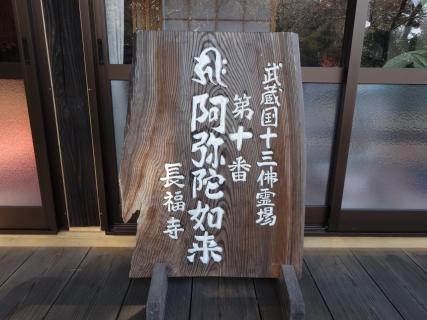 武蔵国十三佛霊場
第十番
阿弥陀如来
長福寺